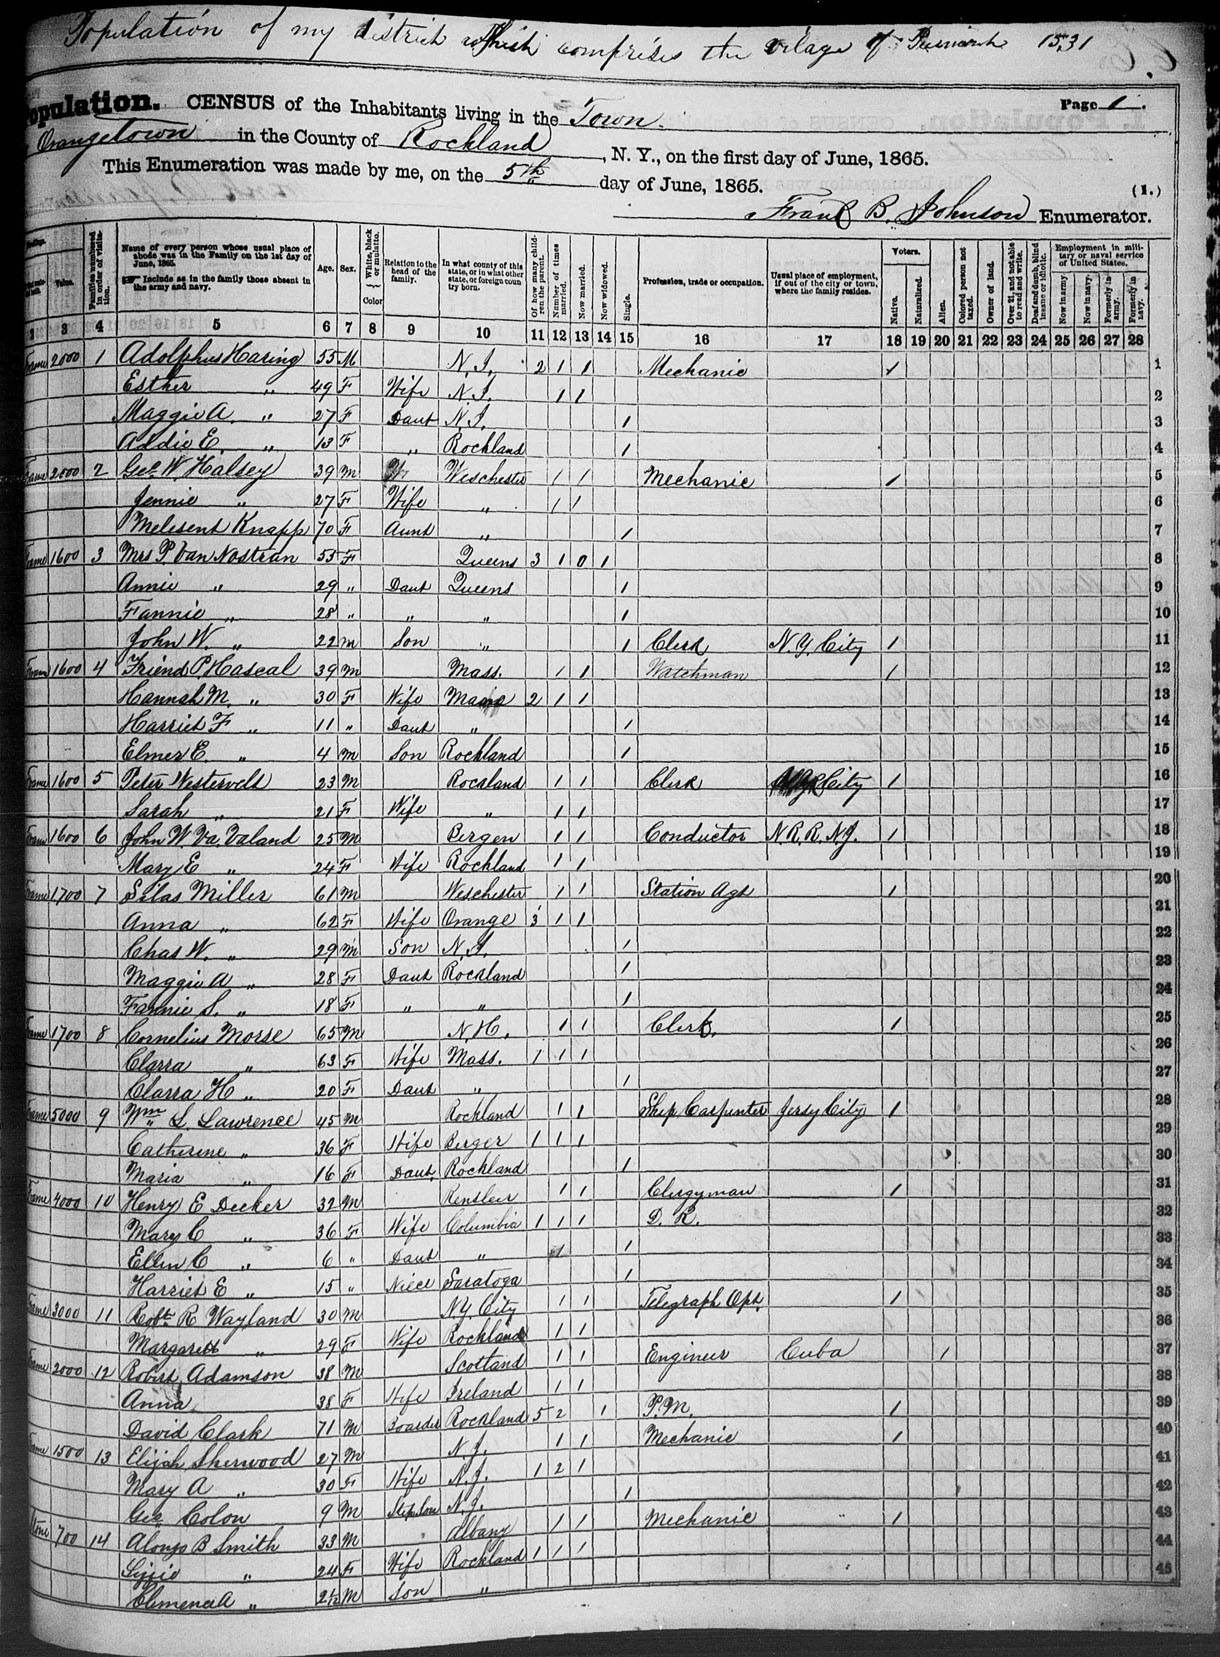 Population of my district which comprises the vilage of Piermont 1531
Population. CENSUS of the Inhabitants living in the Town Page 1.
Orangetown in the County of Rockland, N. Y., on the first day of June, 1865.
This Enumeration was made by me, on the 5th day of June, 1865.
(1.)
Frank B. Johnson Enumerator.
Value. Families numbered in order of visitation. Name of every person whose usual place of abode was in the Family on the 1st day of June, 1865. Include as in the family those absent in the army and navy. Age. Sex. White, black or mulatto. Color Relation to the head of the family. In what county of this state, or in what other state, or foreign country born. Of how many children the parent. Number of times married. Now married. Now widowed. Single. Profession, trade or occupation. Usual place of employment, if out of the city or town, where the family resides. Voters. Native. Naturalized. Alien. Colored person not taxed. Owner of land. Over 21, and not able to read and write. Deaf and dumb, blind insane or idiotic. Employment in military or naval service of United States. Now in army. Now in navy. Formerly in army. Formerly in navy.
3 4 5 6 7 8 9 10 11 12 13 14 15 16 17 18 19 20 21 22 23 24 25 26 27 28
Frame 2000 1 Adolphus Haring 55 M N.J. 2 1 1 Mechanic 1 1
Esther " 49 F Wife N.J. 1 1 2
Maggie A. " 27 F Daut N.J. 1 3
Addie E. " 13 F " Rockland 1 4
Frame 2000 2 Geo. W. Halsey 39 M Weschester 1 1 Mechanic 1 5
Jennie " 27 F Wife " 1 1 6
Melesent Knapp 70 F Aunt " 1 7
Frame 1600 3 Mrs P. Van Nostran 55 F Queens 3 1 0 1 8
Annie " 29 " Daut Queens 1 9
Fannie " 28 " " " 1 10
John W. " 22 m Son " 1 Clerk N.Y. City 1 11
Frame 1600 4 Friend P. Hascal 39 M Mass. 1 1 Watchman 1 12
Hannah M. " 30 F Wife Mass 2 1 1 13
Harriet F " 11 " Daut " 1 14
Elmer E. " 4 m Son Rockland 1 15
Frame 1600 5 Peter Westervelt 23 M Rockland 1 1 Clerk City 1 16
Sarah " 21 F Wife " 1 1 17
Frame 1600 6 John W Va. Valand 25 M Bergen 1 1 Conductor N.R.R. N.J. 1 18
Mary E " 24 F Wife Rockland 1 1 19
Frame 1700 7 Silas Miller 61 M Weschester 1 1 Station Agt 1 20
Anna " 62 F Wife Orange 3 1 1 21
Chas W. " 29 M Son N.J. 1 22
Maggie A " 28 F Daut Rockland 1 23
Fannie S. " 18 F " " 1 24
Frame 1700 8 Cornelius Morse 65 M N.H. 1 1 Clerk. 1 25
Clarra " 63 F Wife Mass. 1 1 1 26
Clarra H " 20 F Daut " 1 27
Frame 5000 9 Wm S. Lawrence 45 M Rockland 1 1 Ship Carpenter Jersy City 1 28
Catherine " 36 F Wife Berger 1 1 1 29
Maria " 16 F Daut Rockland 1 30
Frame 4000 10 Henry E Decker 32 M Rensleer 1 1 Clergyman 1 31
Mary C " 36 F Wife Columbia 1 1 1 D. R. 32
Ellen C " 6 " Daut " 1 33
Harriet E " 15 " Niece Saratoga 1 34
Frame 3000 11 Robt. R Wayland 30 M N.Y. City 1 1 Telegraph Opt. 1 35
Margaret " 29 F Wife Rockland 1 1 36
Frame 2000 12 Robert Adamson 38 M Scotland 1 1 Engineer Cuba 1 37
Anna 38 F Wife Ireland 1 1 38
David Clark 71 M Boarder Rockland 5 2 1 P.M. 1 39
Frame 1500 13 Elijah Sherwood 27 M N.J. 1 1 Mechanic 1 40
Mary A " 30 F Wife N.J. 1 2 1 41
Geo. Colon 9 M Stepson N.J. 1 42
Stone 700 14 Alonzo B Smith 33 M Albany 1 1 Mechanic 1 43
Lizzie " 24 F Wife Rockland 1 1 1 44
Clemence A " 2½ M Son " 45